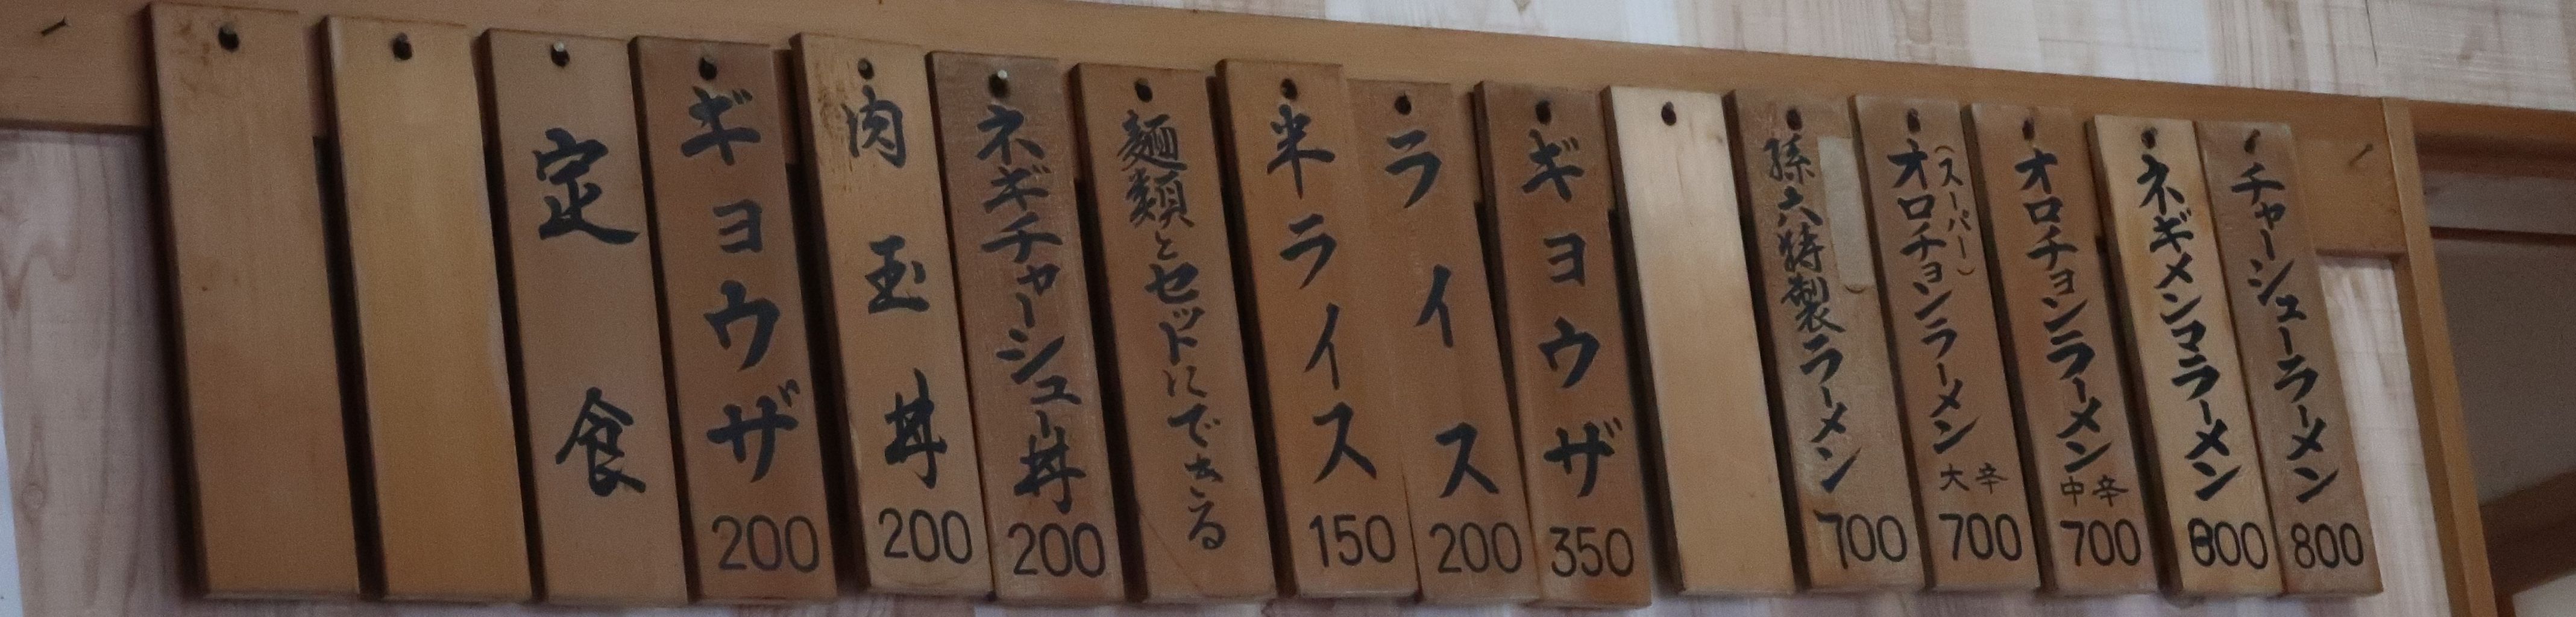 チャーシューラーメン 800
ネギメンマラーメン 800
オロチョンラーメン 中辛 700
(スーパー)
オロチョンラーメン 大辛 700
孫六特製ラーメン 700
ギョウザ 350
ライス 200
半ライス 150
麺類とセットにできる
ネギチャーシュー丼 200
肉玉丼 200
ギョウザ 200
定食